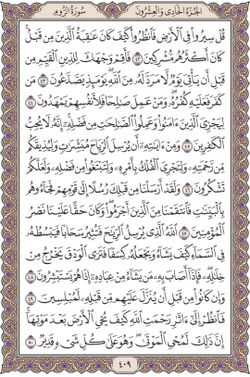 الجزء الحادي والعشرون
سورة الروم
قُلْ سِيرُوا۟ فِى ٱلْأَرْضِ فَٱنظُرُوا۟ كَيْفَ كَانَ عَـٰقِبَةُ ٱلَّذِينَ مِن قَبْلُ
كَانَ أَكْثَرُهُم مُّشْرِكِينَ ٤٢ فَأَقِمْ وَجْهَكَ لِلدِّينِ ٱلْقَيِّمِ مِن
قَبْلِ أَن يَأْتِىَ يَوْمٌ لَّا مَرَدَّ لَهُۥ مِنَ ٱللَّهِ يَوْمَئِذٍ يَصَّدَّعُونَ ٤٣ مَن
كَفَرَ فَعَلَيْهِ كُفْرُهُۥ وَمَنْ عَمِلَ صَـٰلِحًا فَلِأَنفُسِهِمْ يَمْهَدُونَ ٤٤
لِيَجْزِىَ ٱلَّذِينَ ءَامَنُوا۟ وَعَمِلُوا۟ ٱلصَّـٰلِحَـٰتِ مِن فَضْلِهِۦٓ إِنَّهُۥ لَا يُحِبُّ
ٱلْكَـٰفِرِينَ ٤٥ وَمِنْ ءَايَـٰتِهِۦٓ أَن يُرْسِلَ ٱلرِّيَاحَ مُبَشِّرَٰتٍ وَلِيُذِيقَكُم
مِّن رَّحْمَتِهِۦ وَلِتَجْرِىَ ٱلْفُلْكُ بِأَمْرِهِۦ وَلِتَبْتَغُوا۟ مِن فَضْلِهِۦ وَلَعَلَّكُمْ
تَشْكُرُونَ ٤٦ وَلَقَدْ أَرْسَلْنَا مِن قَبْلِكَ رُسُلًا إِلَىٰ قَوْمِهِمْ فَجَآءُوهُم
بِٱلْبَيِّنَـٰتِ فَٱنتَقَمْنَا مِنَ ٱلَّذِينَ أَجْرَمُوا۟ وَكَانَ حَقًّا عَلَيْنَا نَصْرُ
ٱلْمُؤْمِنِينَ ٤٧ ٱللَّهُ ٱلَّذِى يُرْسِلُ ٱلرِّيَـٰحَ فَتُثِيرُ سَحَابًا فَيَبْسُطُهُۥ
فِى ٱلسَّمَآءِ كَيْفَ يَشَآءُ وَيَجْعَلُهُۥ كِسَفًا فَتَرَى ٱلْوَدْقَ يَخْرُجُ مِنْ
خِلَـٰلِهِۦ فَإِذَآ أَصَابَ بِهِۦ مَن يَشَآءُ مِنْ عِبَادِهِۦٓ إِذَا هُمْ يَسْتَبْشِرُونَ ٤٨
وَإِن كَانُوا۟ مِن قَبْلِ أَن يُنَزَّلَ عَلَيْهِم مِّن قَبْلِهِۦ لَمُبْلِسِينَ ٤٩
فَٱنظُرْ إِلَىٰٓ ءَاثَـٰرِ رَحْمَتِ ٱللَّهِ كَيْفَ يُحْىِ ٱلْأَرْضَ بَعْدَ مَوْتِهَآ
إِنَّ ذَٰلِكَ لَمُحْىِ ٱلْمَوْتَىٰ وَهُوَ عَلَىٰ كُلِّ شَىْءٍ قَدِيرٌ ٥٠
٤٠٩